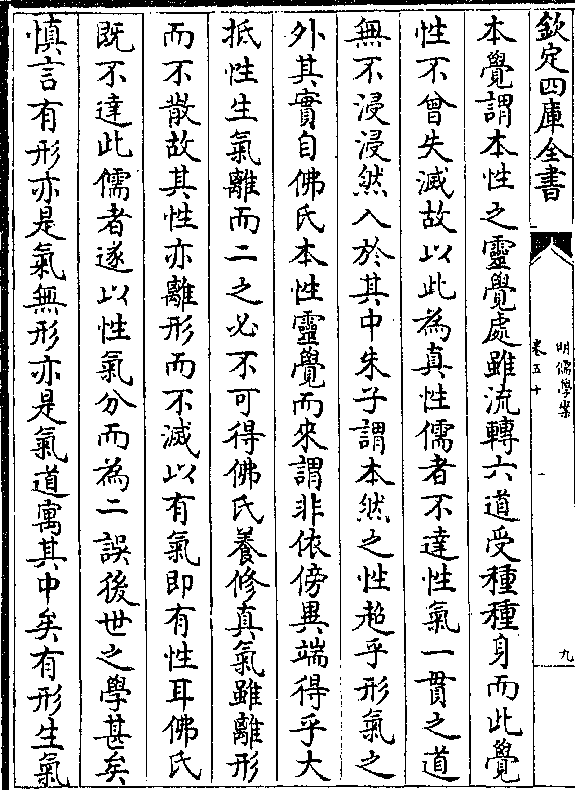 欽定四庫全書
明儒學案
卷五十
九
本覺謂本性之靈覺處雖流轉六道受種種身而此覺
性不曾失滅故以此為真性儒者不達性氣一貫之道
無不浸浸然入於其中朱子謂本然之性超乎形氣之
外其實自佛氏本性靈覺而來謂非依傍異端得乎大
抵性生氣離而二之必不可得佛氏養修真氣雖離形
而不散故其性亦離形而不滅以有氣即有性耳佛氏
既不達此儒者遂以性氣分而為二誤後世之學甚矣
慎言有形亦是氣無形亦是氣道寓其中矣有形生氣